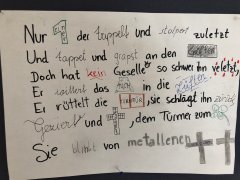 Nur 1 der zappelt und stolpert zuletzt
Und tappet und grapst an den
Doch hat kein Geselle so schwer ihn veletzt
Er das in die Lüften
Er rüttelt die , sie schlägt ihn zurück
Geziert und , dem Türmer zum
Sie blinkt von metallenen